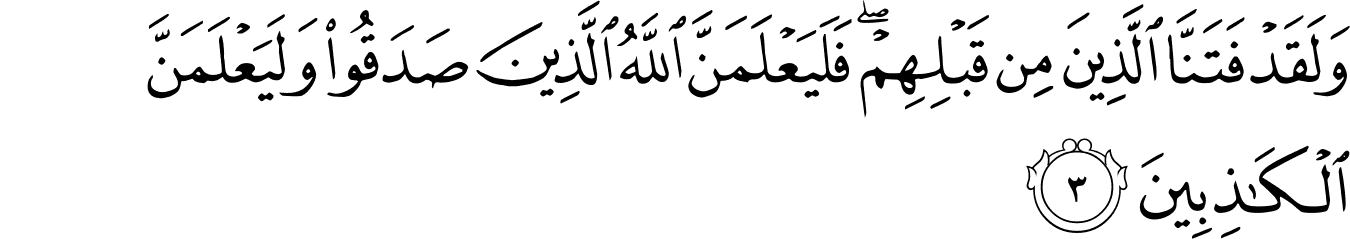 وَلَقَدْ فَتَنَّا ٱلَّذِينَ مِن قَبْلِهِمْ ۖ فَلَيَعْلَمَنَّ ٱللَّهُ ٱلَّذِينَ صَدَقُوا۟ وَلَيَعْلَمَنَّ
ٱلْكَـٰذِبِينَ ٣